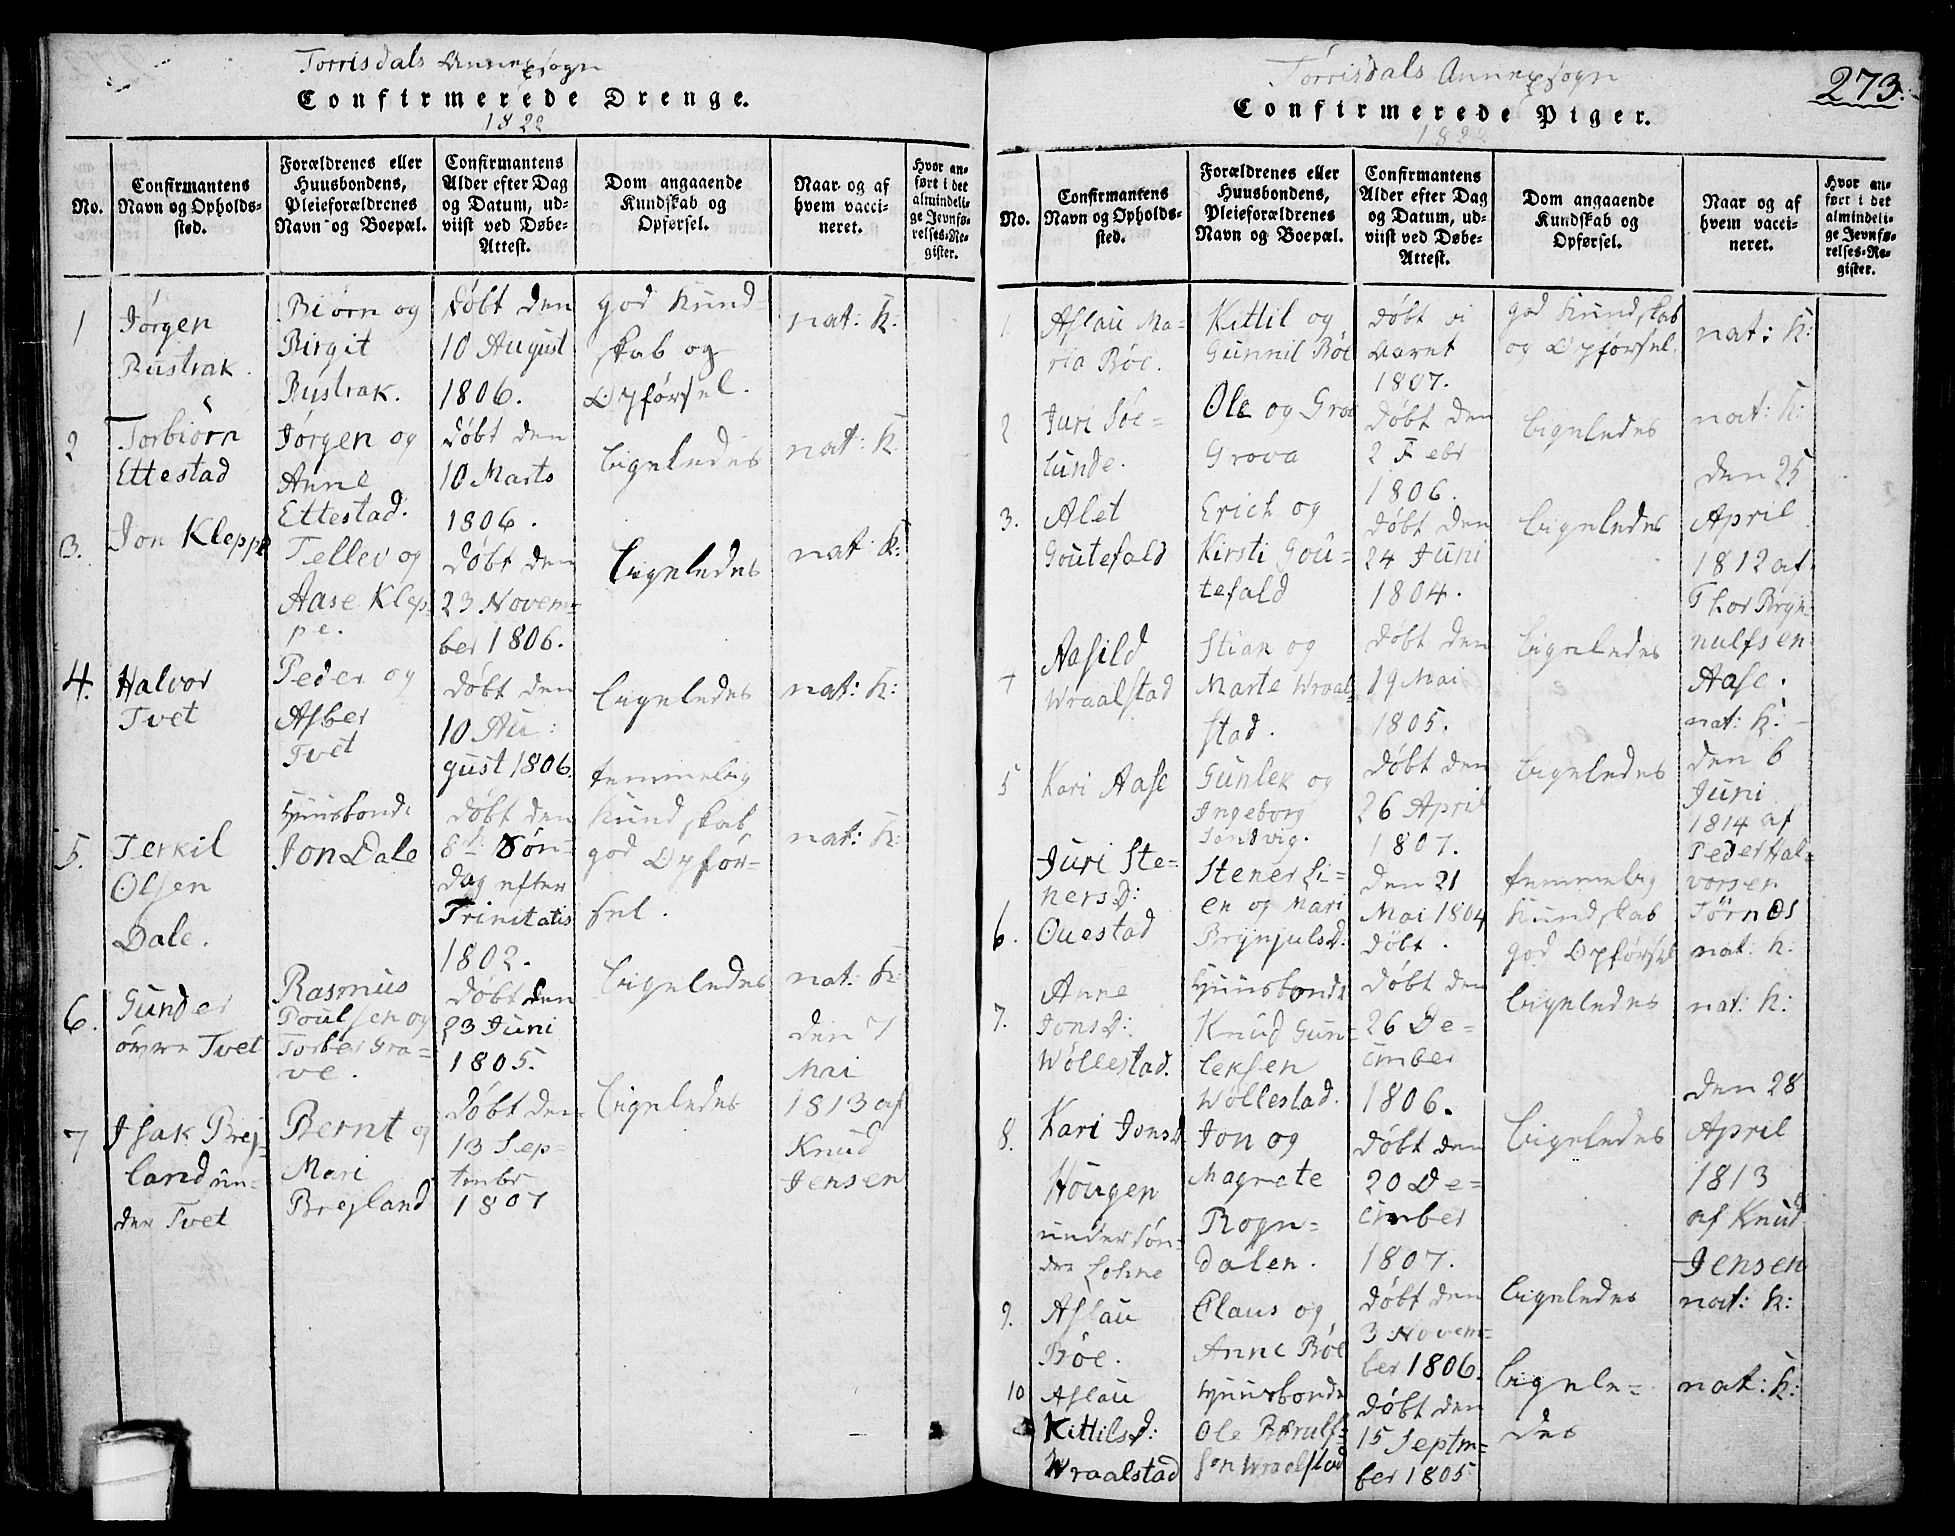 Torrisdals Annexsogn
Confirmerede Drenge.
1822
No.
Confirmantens
Navn og Opholds-
sted.
Forældrenes eller
Huusbondens,
Pleieforældrenes
Navn og Boepæl.
Confirmantens
Alder efter Dag
og Datum, ud-
viist ved Døbe-
Attest.
Dom angaaende
Kundskab og
Opførsel.
Naar og af
hvem vacci-
neret.
Hvor an-
ført i det
almindeli-
ge Jevnfø-
relses-Re-
gister.
1
Jørgen
Rustrak.
Biørn og
Birgit
Rustrak.
døbt den
10 August
1806.
god Kund-
skab og
Opførsel.
nat: K:
2
Torbiørn
Ettestad
Jørgen og
Anne
Ettestad.
døbt den
10 Marts
1806.
Ligeledes
nat: K:
3.
Jon Kleppe
Tellev og
Aase Klep-
pe.
døbt den
23 Novem-
ber 1806.
Ligeledes
nat: K:
4.
Halvor
Tvet
Peder og
Asber
Tvet
døbt den
10 Au:
gust 1806.
Ligeledes
nat: K:
5.
Terkil
Olsen
Dale.
Huusbonde
Jon Dale
døbt den
8de Søn-
dag efter
Trinitatis
1802.
temmelig
Kundskab,
god Opfør-
sel.
nat: K:
6.
Gunder
øvre Tvet
Rasmus
Poulsen og
Torber Gra-
ve.
døbt den
23 Juni
1805.
Ligeledes
nat: K:
7
Isak Brej-
land un-
der Tvet
Bernt og
Mari
Brejland
døbt den
13 Sep-
tembr
1807
Ligeledes
den 7
Mai
1813 af
Knud
Jensen
273.
Torrisdals Annexsogn
Confirmerede Piger.
1822
No.
Confirmantens
Navn og Opholds-
sted.
Forældrenes eller
Huusbondens,
Pleieforældrenes
Navn og Boepæl.
Confirmantens
Alder efter Dag
og Datum, ud-
viist ved Døbe-
Attest.
Dom angaaende
Kundskab og
Opførsel.
Naar og af
hvem vacci-
neret.
Hvor an-
ført i det
almindeli-
ge Jevnfø-
relses-Re-
gister.
1.
Aslau Ma-
ria Bøe.
Kittil og
Gunnil Bøe
døbt i
Aaret
1807.
god Kundskab
og Opførsel.
nat: K:
2
Juri Soe-
lunde.
Ole og Groe
Grova
døbt den
2 Febr
1806.
Ligeledes
nat: K:
3.
Alet
Goutefald
Erich og
Kirsti Gou-
tefald
døbt den
24 Juni
1804.
Ligeledes
den 25
April
1812 af
Thor Bryn-
nulfsen
Aase.
4
Aasild
Wraalstad
Stian og
Marte Wraal-
stad.
døbt den
19 Mai
1805.
Ligeledes
nat: K:
5
Kari Aase
Gunlek og
Ingeborg
Sandvig.
døbt den
26 April
1807.
Ligeledes
den 6
Juni
1814 af
Peder Hal-
vorsen
Tørnes
6.
Juri Ste-
nersd:
Ouestad
Stener Li-
en og Mari
Brynjulsd:
den 21
Mai 1804
døbt.
temmelig
Kundskab
god Opførsel
nat: K:
7.
Anne
Jonsd:
Wøllestad.
Huusbonde
Knud Gun-
leksen
Wøllestad.
døbt den
26 De-
cember
1806.
Ligeledes
nat: K:
8.
Kari Jonsd
Hougen
under søn-
dre Lohne
Jon og
Magrete
Rogn-
dalen.
døbt den
20 De-
cember
1807.
Ligeledes
den 28
April
1813
af Knud
Jensen
9.
Aslau
Bøe.
Claus og
Anne Bøe
døbt den
3 Novem-
ber 1806.
Ligeledes
nat: K:
10
Aslau
Kittilsd:
Wraalstad
Huusbonde
Ole Rorulf-
son Wraalstad
døbt den
15 Septm-
ber 1805
Ligele-
des
nat: K: